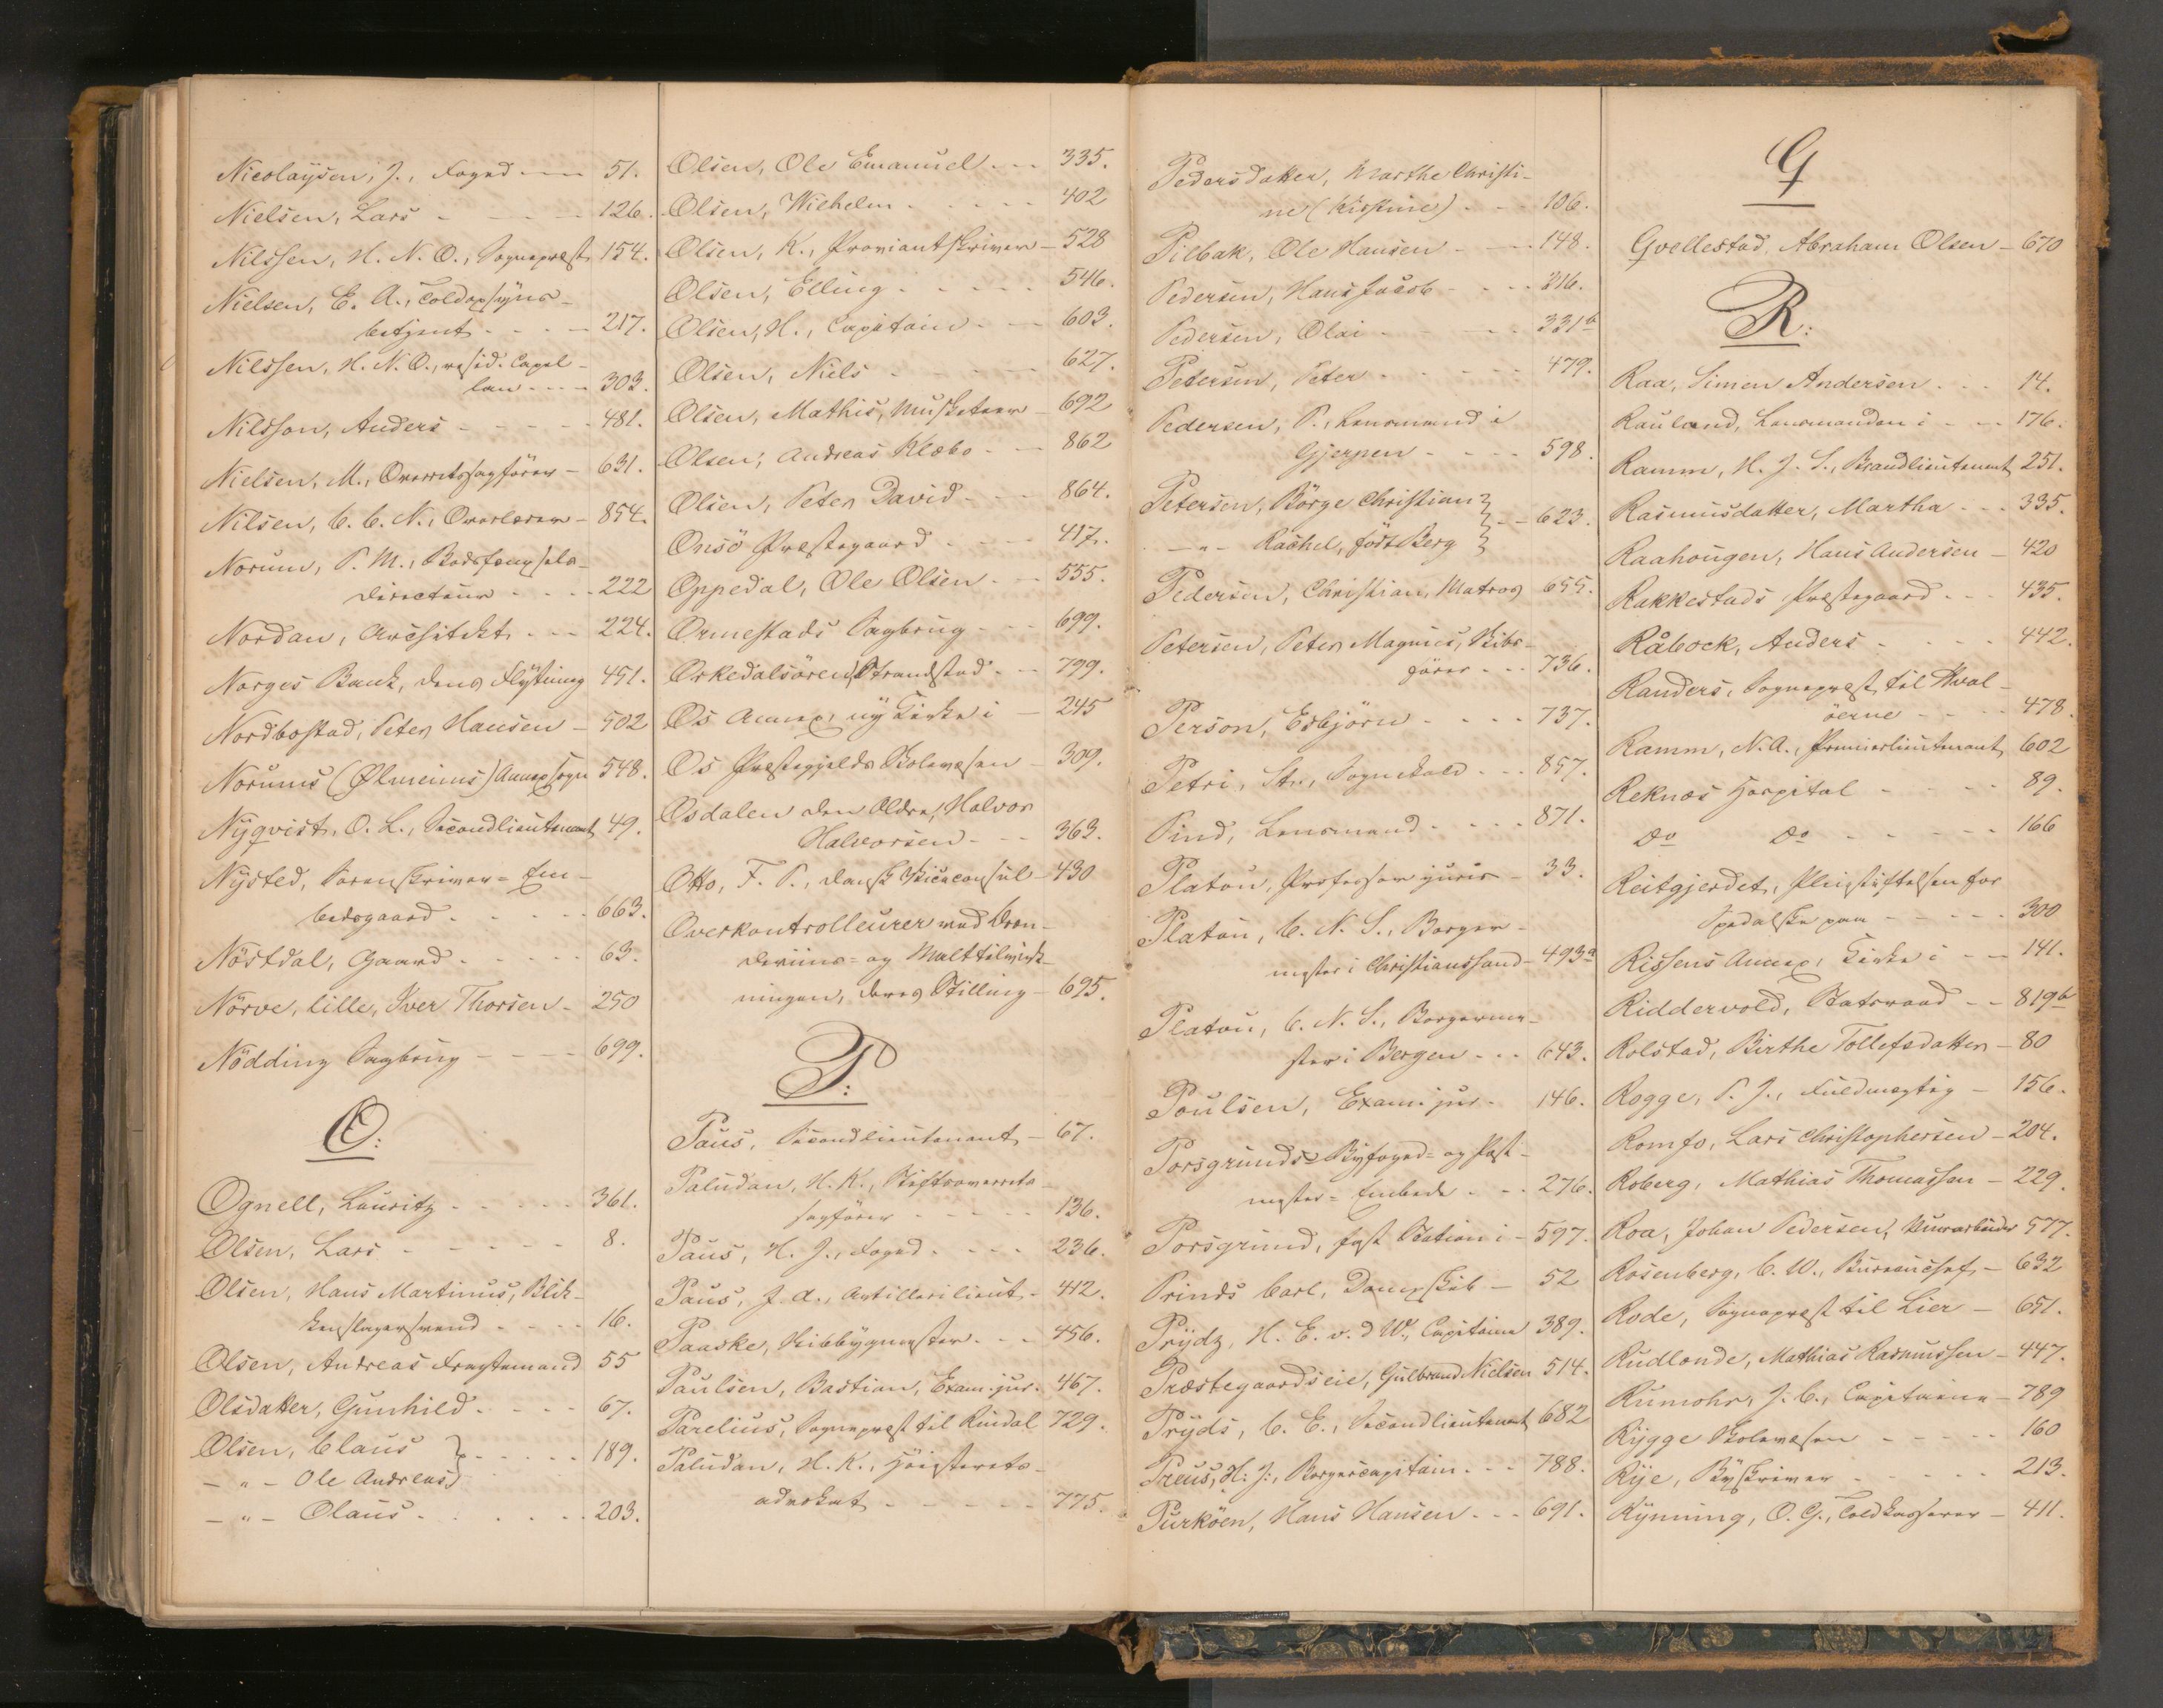 Nicolaysen, J., Foged - - - 51.
Nielsen, Lars - - - - 126.
Nilssen, H. N. O., Sognepræst 154.
Nielsen, E. A., Toldopsyns-
betjent - - - - 217.
Nilssen, H. N. O., resid. Capel-
lan - - - - 303.
Nilsson, Anders - - - - - 481.
Nielsen, M., Overretssagfører - 631.
Nilsen, C. C. N., Overlærer - 854.
Norum, P. M., Bodsfængsels-
directeur - - - - 222
Nordan, Architekt - - - 224.
Norges Bank, dens Flytning 451.
Nordbøstad, Peter Hansen - 502
Norums (Ølmeims) Annexsogn 548.
Nyqvist, O. L., Secondlieutenant 49.
Nysted, Sorenskriver= Em-
bedsgaard - - - - - 663.
Nöstdal, Gaard - - - - - 63.
Nörve, lille, Iver Thorsen - 250
Nödding Sagbrug - - - - 699.
O:
Ognell, Lauritz - - - - - 361.
Olsen, Lars - - - - - 8.
Olsen, Hans Martinus, Blik-
kenslagersvend - - - - 16.
Olsen, Andreas Fragtemand 55
Olsdatter, Gunhild - - - - 67.
Olsen, Claus } - - - - - 189.
- " - Ole Andreas }
- " - Olaus - - - - - - 203.
Olsen, Ole Emanuel - - - 335.
Olsen, Wilhelm - - - - - 402
Olsen, K., Proviantskriver - 528
Olsen, Elling - - - - - 546.
Olsen, H., Capitain - - - 603.
Olsen, Niels - - - - - 627.
Olsen, Mathis, Musketeer - 692
Olsen, Andreas Klæbo - - - 862
Olsen, Peter David - - - 864.
Onsö Præstegaard - - - - 417.
Oppedal, Ole Olsen - - - 555.
Ormestads Sagbrug - - - 699.
Orkedalsören, Strandstad - - - 799.
Os Annex, ny Kirke i - 245
Os Præstegjelds Skolevæsen - 309.
Osdalen den Ældre, Halvor
Halvorsen - - - 363.
Otto, F. P., dansk Viceconsul - 430
Overkontrolleurer ved Bræn-
deviins= og Malttilvirk-
ningen, deres Stilling - 695.
P:
Paus, Secondlieutenant - 67.
Paludan, H. K., Stiftsoverrets-
sagfører - - - - - 136.
Paus, H. J., Foged - - - - 236.
Paus, J. A., Artillerilieut. - 412.
Paaske, Skibbygmester - - - 456.
Paulsen, Bastian, Exam. jur. 467.
Parelius, Sognepræst til Rindal 729.
Paludan, H. K., Høiesterets-
advokat - - - - - - 775.
Pedersdatter, Marthe Christi-
ne (Kistine) - - - 106.
Pilbak, Ole Hansen - - - 148.
Pedersen, Hans Jacob - - - 316.
Pedersen, Olai - - - - 331b
Petersen, Peter - - - - - 479.
Pedersen, P., Lensmand i
Gjerpen - - - - 598.
Petersen, Börge Christian } - - 623.
- " - Rachel, født Berg }
Pedersen, Christian, Matros 655.
Petersen, Peter Magnus, Skibs-
fører - - - 736.
Person, Esbjörn - - - - 737.
Petri, Str., Sognekald - - - 857.
Pind, Lensmand - - - - 871.
Platou, Professor juris - 33.
Platou, C. N. S., Borger-
mester i Christianssand - 493a
Platou, C. N. S., Borgerme-
ster i Bergen - - - 643.
Poulsen, Exam. jur. 146.
Porsgrunds Byfoged= og Post-
mester= Embede - - - 276.
Porsgrund, fast Station i - 597.
Prinds Carl, Dampskib - 52
Prydz, H. E. v. d W., Capitaine 389.
Præstegaardseie, Gulbrand Nielsen 514.
Pryds, C. E., Secondlieutenant 682
Preus, H. J., Borgercapitain - - - 788.
Purköen, Hans Hansen - - - 691.
Q
Qvellestad, Abraham Olsen - 670
R:
Raa, Simen Andersen - - - 14.
Rauland, Lensmanden i - - - 176.
Ramm, H. J. S., Brandlieutenant 251.
Rasmusdatter, Martha - - - 335.
Raahougen, Hans Andersen - 420
Rakkestads Præstegaard - - - 435.
Råbock, Anders - - - - - 442.
Randers, Sognepræst til Hval-
öerne - - - - 478.
Ramm, N. A., Premierlieutenant 602
Reknæs Hospital - - - - 89.
do do - - - - - - 166
Reitgjerdet, Pleiestiftelsen for
Spedalske paa - - - - - 300
Rissens Annex, Kirke i - - - 141.
Riddervold, Statsraad - - - 819b
Rolstad, Birthe Tollefsdatter - 80
Rogge, P. J., Fuldmægtig - 156.
Romfo, Lars Christophersen - 204.
Roberg, Mathias Thomassen - 229.
Roa, Johan Pedersen, Murarbeider 577.
Rosenberg, C. W., Bureauchef - 632
Rode, Sognepræst til Lier - 651.
Rudlonde, Mathias Rasmussen - 447.
Rumohr, J. C., Capitaine - 789
Rygge Skolevæsen - - - - - 160
Rye, Byskriver - - - - - 213.
Rynning, O. G., Toldkasserer - 411.